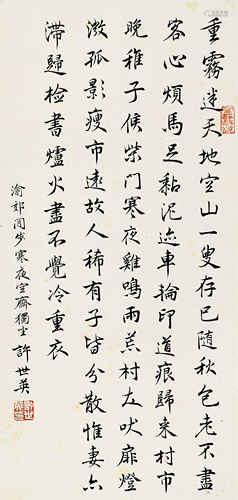 重霧迷天地空山一叟存已隨秋色老不盡
客心煩馬足黏泥迹車輪印道痕歸來村市
晚稚子候柴門寒夜雞鳴雨荒村犬吠扉燈
微孤影瘦市遠故人稀有子皆分散惟妻亦
滯歸檢書爐火盡不覺冷重衣
渝郊閒步寒夜空齋獨坐 許世英